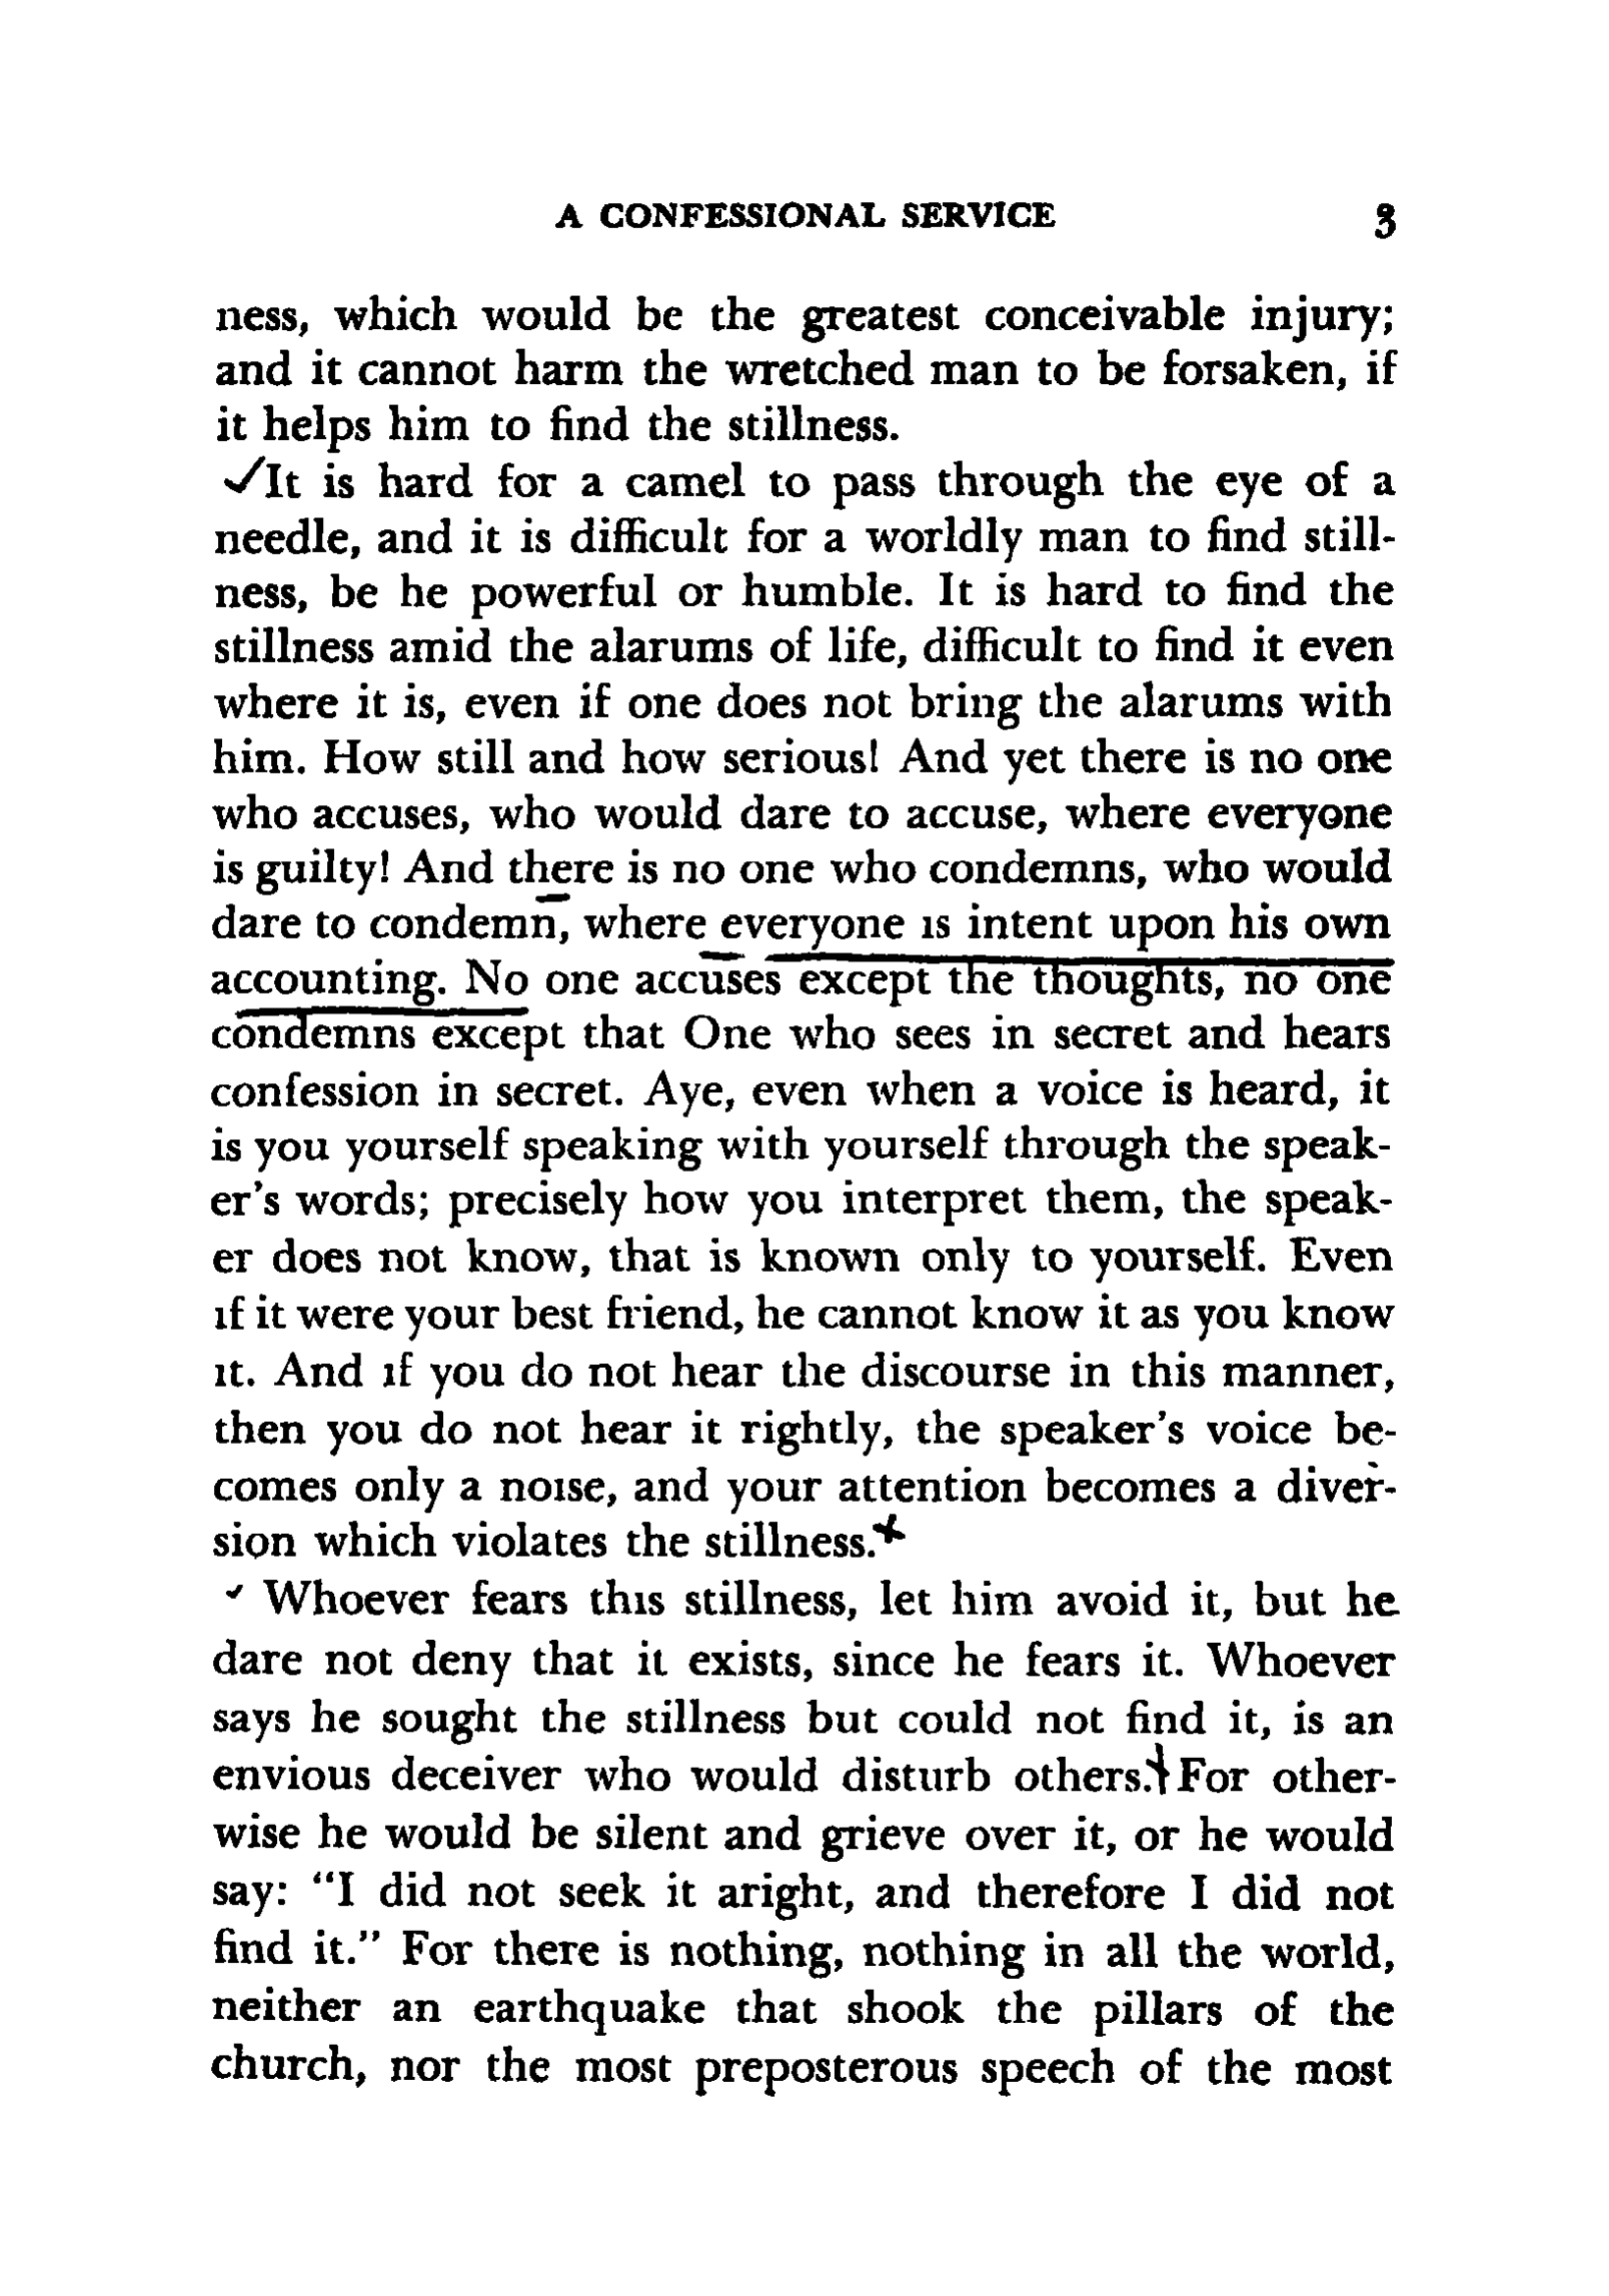 A CONFESSIONAL SERVICE 3
ness, which would be the greatest conceivable injury;
and it cannot harm the wretched man to be forsaken, if
it helps him to find the stillness.
✓It is hard for a camel to pass through the eye of a
needle, and it is difficult for a worldly man to find still-
ness, be he powerful or humble. It is hard to find the
stillness amid the alarums of life, difficult to find it even
where it is, even if one does not bring the alarums with
him. How still and how serious! And yet there is no one
who accuses, who would dare to accuse, where everyone
is guilty! And there is no one who condemns, who would
dare to condemn, where everyone is intent upon his own
accounting. No one accuses except the thoughts, no one
condemns except that One who sees in secret and hears
confession in secret. Aye, even when a voice is heard, it
is you yourself speaking with yourself through the speak-
er's words; precisely how you interpret them, the speak-
er does not know, that is known only to yourself. Even
if it were your best friend, he cannot know it as you know
it. And if you do not hear the discourse in this manner,
then you do not hear it rightly, the speaker's voice be-
comes only a noise, and your attention becomes a diver-
sion which violates the stillness.
✓ Whoever fears this stillness, let him avoid it, but he
dare not deny that it exists, since he fears it. Whoever
says he sought the stillness but could not find it, is an
envious deceiver who would disturb others. For other-
wise he would be silent and grieve over it, or he would
say: "I did not seek it aright, and therefore I did not
find it." For there is nothing, nothing in all the world,
neither an earthquake that shook the pillars of the
church, nor the most preposterous speech of the most